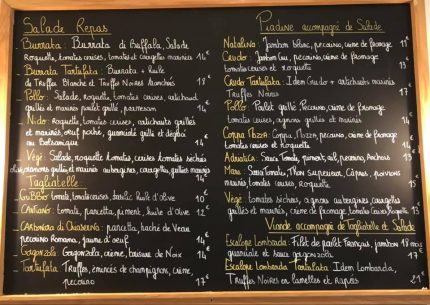 Salade Repas
Burrata : Burrata di Buffala, Salade
Roquette, tomates cerises, tomates et courgettes marinées 14€
Burrata Tartufata : Burrata + Huile
de Truffes Blanche et Truffes Noires
Pollo : Salade, roquette, tomates cerises, artichaud
grillés et marinés poulet grillé, parmesan 14€
Nido : Roquette, tomates cerises, artichauts grillés
et marinés, oeuf poché, guanciale grillé et déglacé
au Balsamique 14€
Végé : Salade, roquette tomates cerises Tomates séchés
oignons grillés et marinés aubergines, courgettes, grillés marinés 14€
Tagliatelle
Gubbio : tomate, tomates cerises, basilic huile d'olive 10€
: tomate, pancetta, piment, huile d'olive 12€
Carbonara di Guanciale : pancetta, bache de Veau
pecorino Romano, jaune d'oeuf 14€
Gorgonzola : Gorgonzola, crème, boisure de Noix 14€
Tartufata : Truffes, émincés de champignons, crème,
pecorino 17€
Piadine accompagné de Salade
Natalina : Jambon blanc, pecorino, crème de fromage 13€
Crudo : Jambon Cru, pecorino, crème de fromage
tomates cerises et roquette 15€
Crudo Tartufata : Idem Crudo + artichauts marinés
Truffes Noires 17€
Pollo : Poulet grillé Pecorino, crème de fromage
tomates cerises, oignons grillés et marinés 14€
Coppa : Coppa, pecorino, crème de fromage
Tomates cerises et roquette 14€
Adriatica : Sauce Tomate, piment, ail, pecorino, Anchois 13€
Mare : Sauce Tomate, Thon Supérieur, Câpres, poivrons
marinés, tomates cerises, roquette 15€
Végé : Tomates séchés, oignons aubergines courgettes
grillés et marinés, crème de fromage Tomates cerises, Roquette
Viande accompagné de Tagliatelle et Salade
Escalope Lombarda : Filet de poulet Français, Jambon
guanciale et sauce gorgonzola 17€
Escalope Lombarda Tartufata : Idem Lombarda,
Truffes Noires en lamelles et Râpés 21€